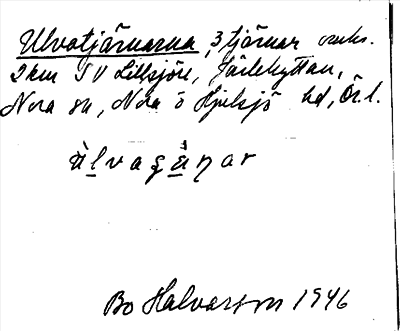 Ulvatjärnarna, 3 tjärnar omkr.
2 km SV Lillsjön, Järlehyttan,
Nora sn, Nora o Hjulsjö hd, Ör. l.
ùlvagånar
Bo Halvarson 1946